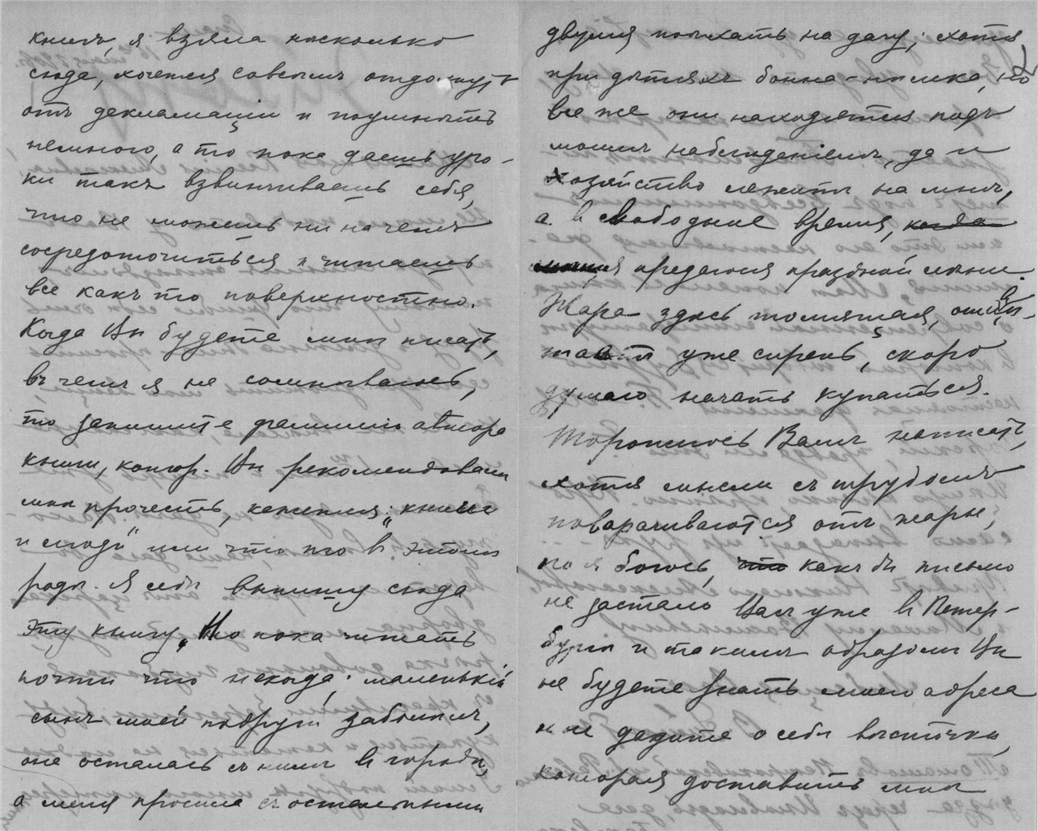 книгъ, я взяла нѣсколько
сюда, хочется совсѣмъ отдохнуть
отъ декламаціи и поумнѣть
немного, а то пока даешь уро-
ки такъ взвинчиваешь себя,
что не можешь ни на чемъ
сосредоточиться и читаешь
все какъ то поверхностно.
Когда Вы будете мнѣ писать,
въ чемъ я не сомнѣваюсь,
то запишите фамилію автора
книги, котор. Вы рекомендовали
мнѣ прочесть, кажется "
и люди" или что то въ этомъ
родѣ. Я себѣ выпишу сюда
эту книгу. Но пока читать
почти что некогда; маленькій
сынъ моей подруги заболѣлъ,
она осталась съ нимъ въ городѣ,
а меня просила съ остальными
2
двумя поѣхать на дачу; хотя
при дѣтяхъ бонна-нѣмка, но
все же они находятся подъ
моимъ наблюденіемъ, да и
хозяйство лежитъ на мнѣ,
а въ свободное время, когда
предаюся праздной лѣни.
Жара здѣсь томящая, отцвѣ-
таетъ уже сирень, скоро
думаю начать купаться.
Тороплюсь Вамъ написать,
хотя мысли съ трудомъ
поварачиваются отъ жары,
но я боюсь, что какъ бы письмо
не застало Васъ уже въ Петер-
бургѣ и такимъ образомъ Вы
не будете знать моего адреса
и не дадите о себѣ вѣсточки,
которая доставитъ мнѣ